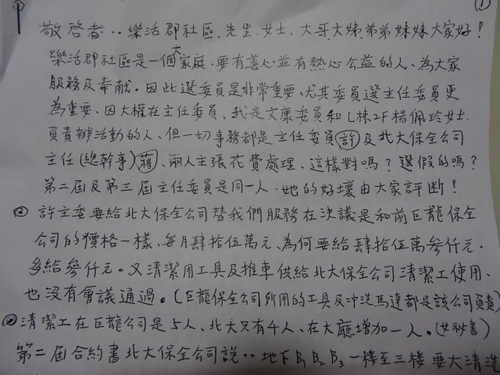 ①
敬啓者：樂活郡社區、先生、女士、大哥大姊弟弟妹妹大家好！
樂活郡社區是一個大家庭、要有善心並有熱心公益的人、為大家
服務及奉献。因此選委員是非常重要、尤其委員選主任委員更
為重要、因大權在主任委員、我是文康委員和L林2F楊佩玲女士
負責辦活動的人、但一切事務都是主任委員(許)及北大保全公司
主任(總幹事)蔣、兩人主張花費處理、這樣對嗎？選假的嗎？
第二屆及第三屆主任委員是同一人、她的好壞由大家評斷！
許主委要給北大保全公司替我們服務在決議是和前巨龍保全
公司的價格一樣、每月肆拾伍萬元、為何要給肆拾伍萬參仟元、
多給參仟元。又清潔用工具及推車供給北大保全公司清潔工使用、
也沒有會議通過。(巨龍保全公司所用的工具及沖洗馬達都是該公司負責)
清潔工在巨龍公司是5人、北大只有4人、在大廳增加一人。(女秘書)
第二屆合約書北大保全公司說：地下B1 B2 B3 一樓至三樓要大清洗